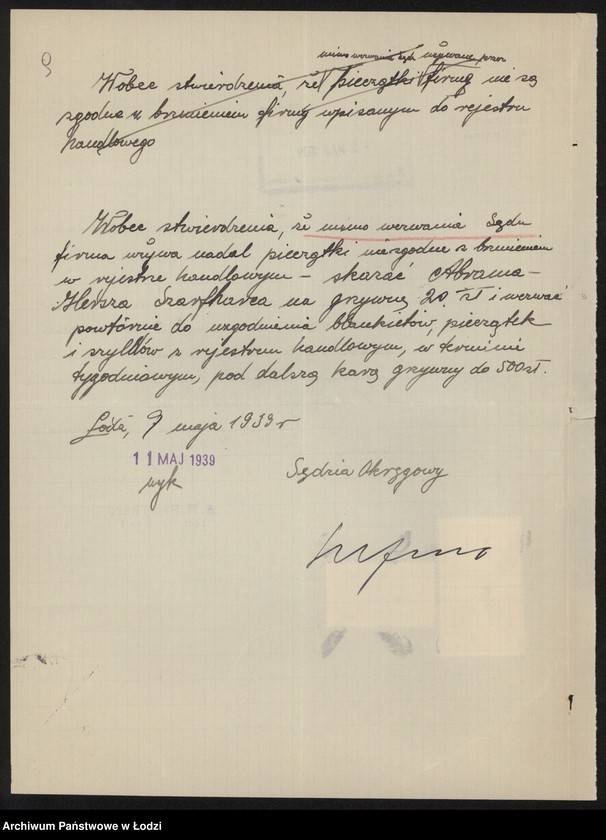 9
mimo wezwania Sądu używane przez
Wobec stwierdzenia, że pieczątki firmy nie są
zgodne z brzmieniem firmy wpisanym do rejestru
handlowego
Wobec stwierdzenia, że mimo wezwania Sądu
firma używa nadal pieczątki niezgodne z brzmieniem
w rejestrze handlowym – skazać Abrama-
Hersza Szarfharca na grzywnę 20 zł i wezwać
powtórnie do uzgodnienia blankietów, pieczątek
i szyldów z rejestrem handlowym, w terminie
tygodniowym, pod dalszą karą grzywny do 500 zł.
Łódź, 9 maja 1939 r
11 MAJ 1939
wyk
Sędzia Okręgowy
Archiwum Państwowe w Łodzi